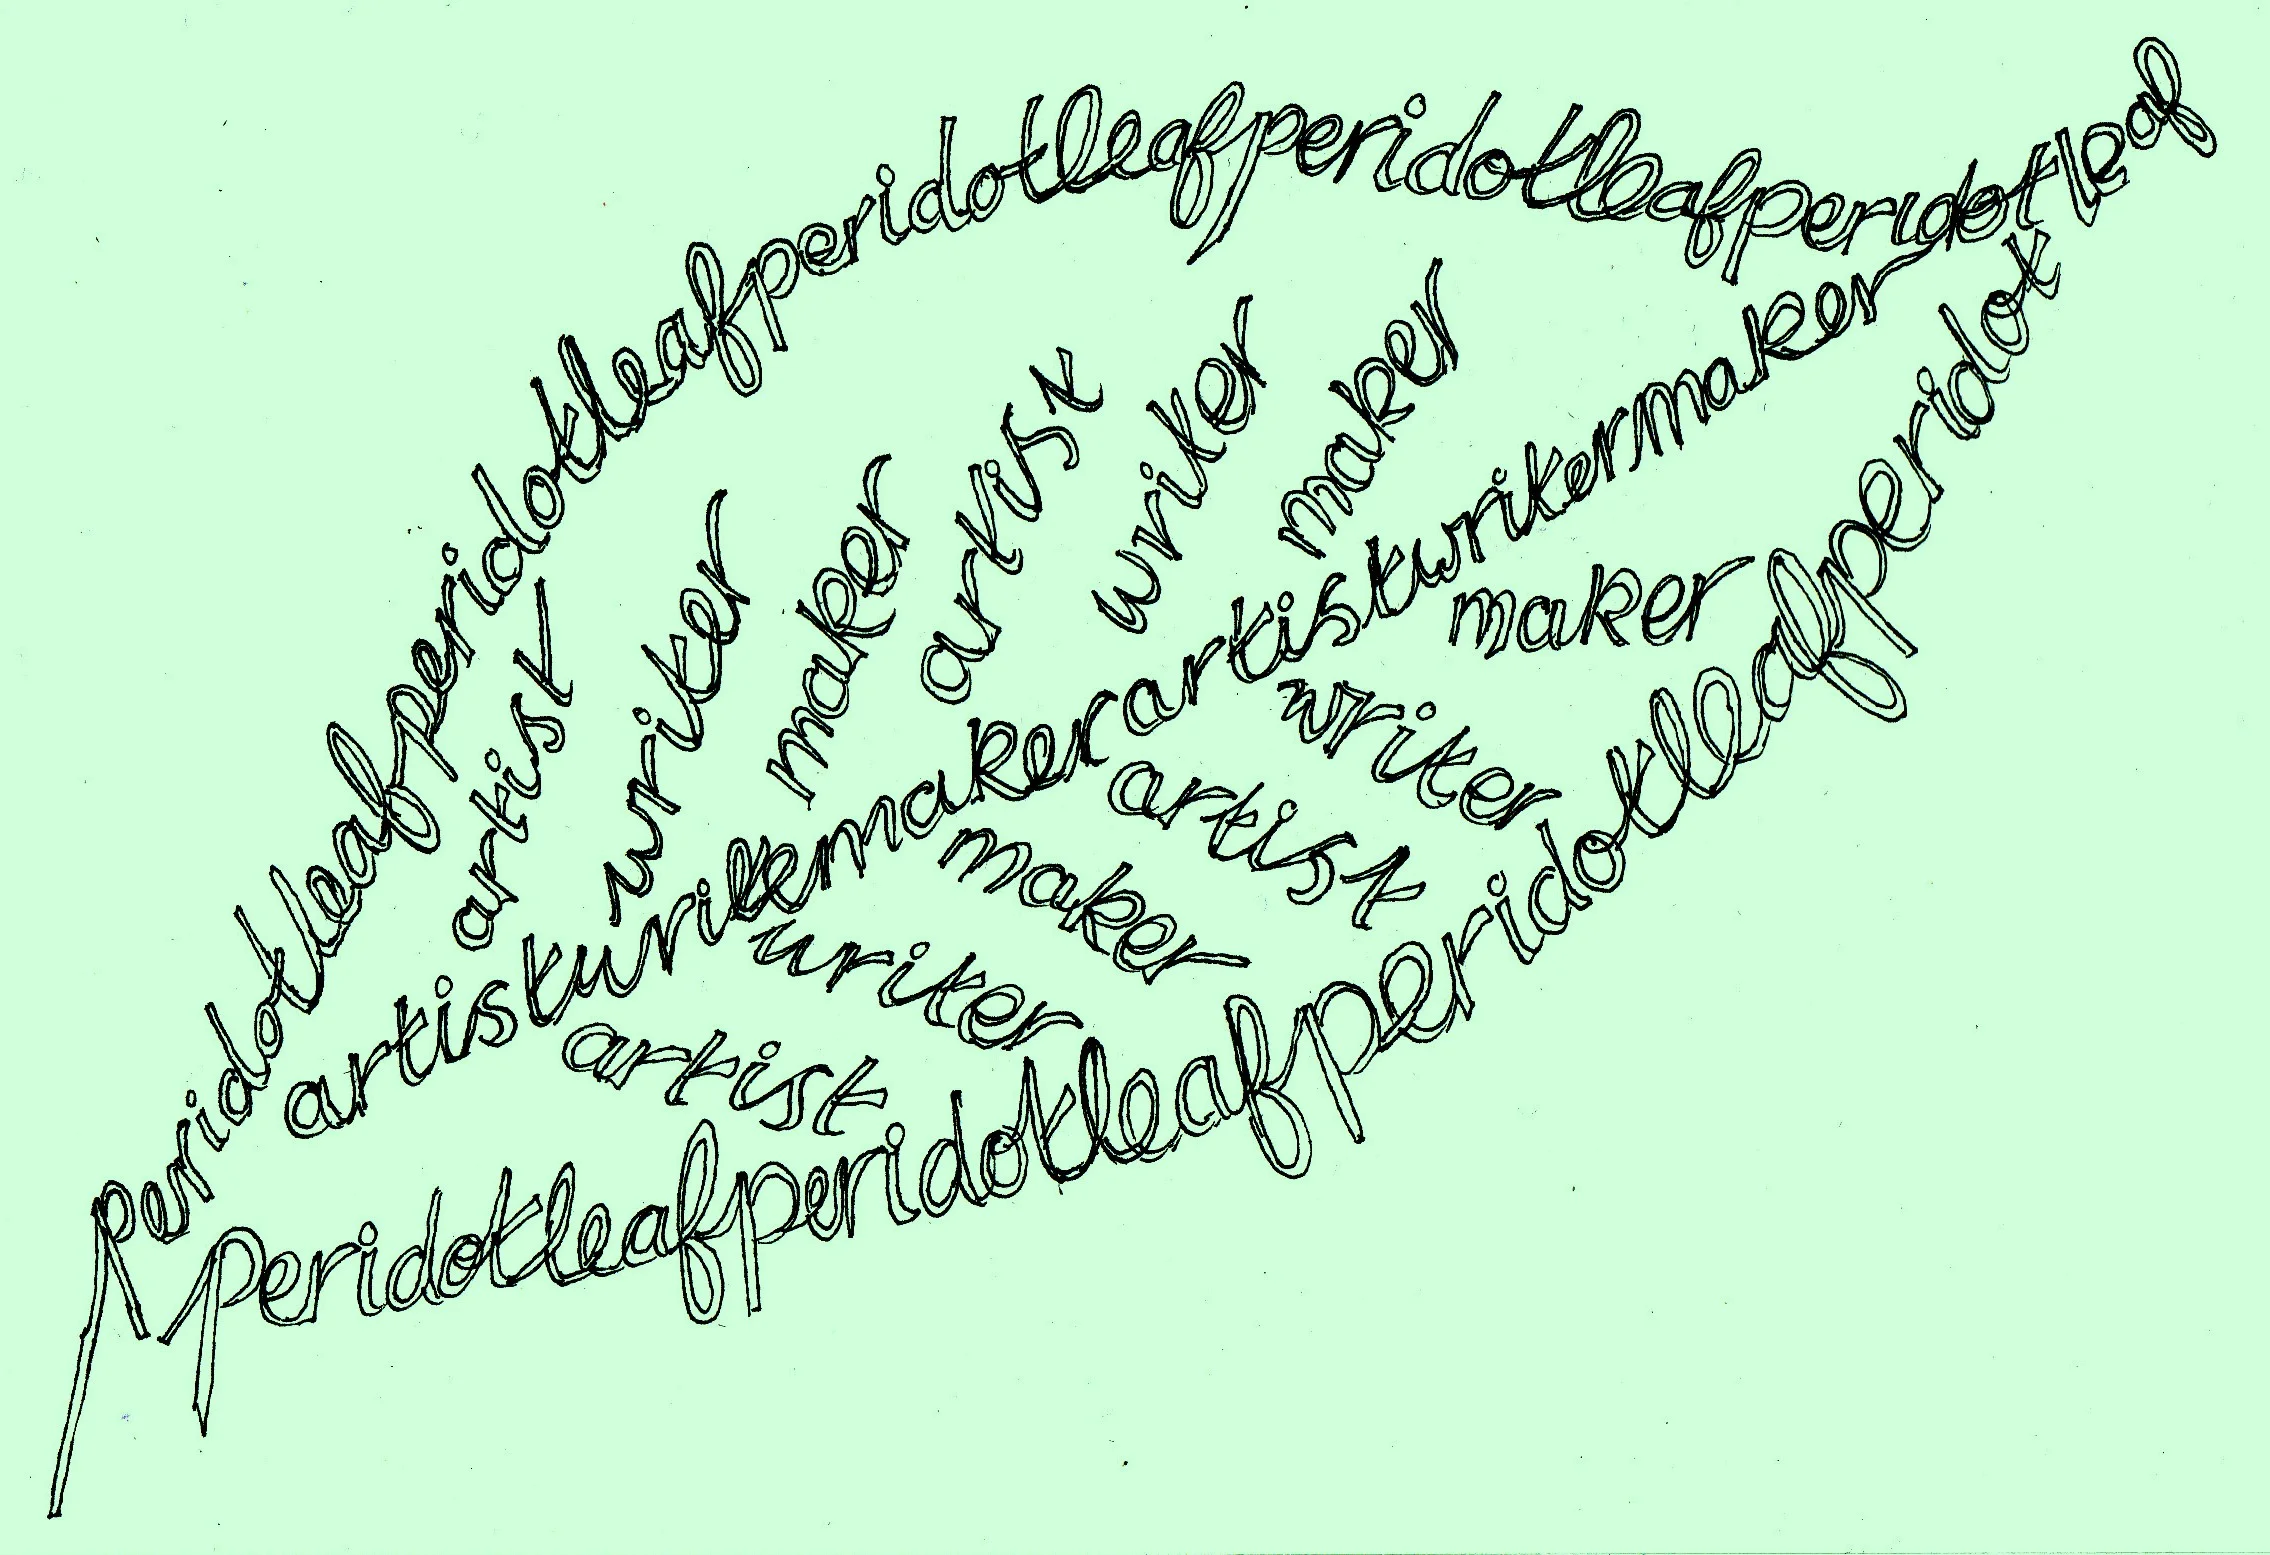 peridotleafperidotleafperidotleafperidotleafperidotleaf
artist
writer
maker
artist
writer
maker
artistwritemakerartistwritermaker
artist
writer
maker
artist
writer
maker
peridotleafperidotleafperidotleafperidot